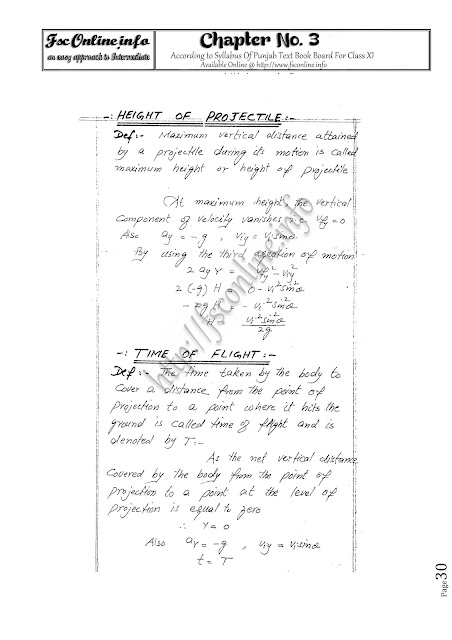 FscOnline.info
an easy approach to Intermediate
Chapter No. 3
According to Syllabus Of Punjab Text Book Board For Class XI
Available Online @ http://www.fsconline.info
-: HEIGHT OF PROJECTILE:-
Def:- Maximum vertical distance attained
by a projectile during its motion is called
maximum height or height of projectile
At maximum height the vertical
Component of velocity vanishes i.e. Vfy = 0
Also ay = -g , Viy = Vi sinθ
By using the third equation of motion
2 ay Y = Vfy² - Viy²
2 (-g) H = 0 - Vi² sin²θ
- 2g H = - Vi² sin²θ
H = Vi² sin²θ / 2g
-: TIME OF FLIGHT:-
Def:- The time taken by the body to
Cover a distance from the point of
Projection to a point where it hits the
ground is called time of flight and is
denoted by T:-
As the net vertical distance
Covered by the body from the point of
Projection to a point at the level of
Projection is equal to zero
∴ Y = 0
Also ay = -g , Viy = Vi sinθ
t = T
http://fsconline.info
Page 30